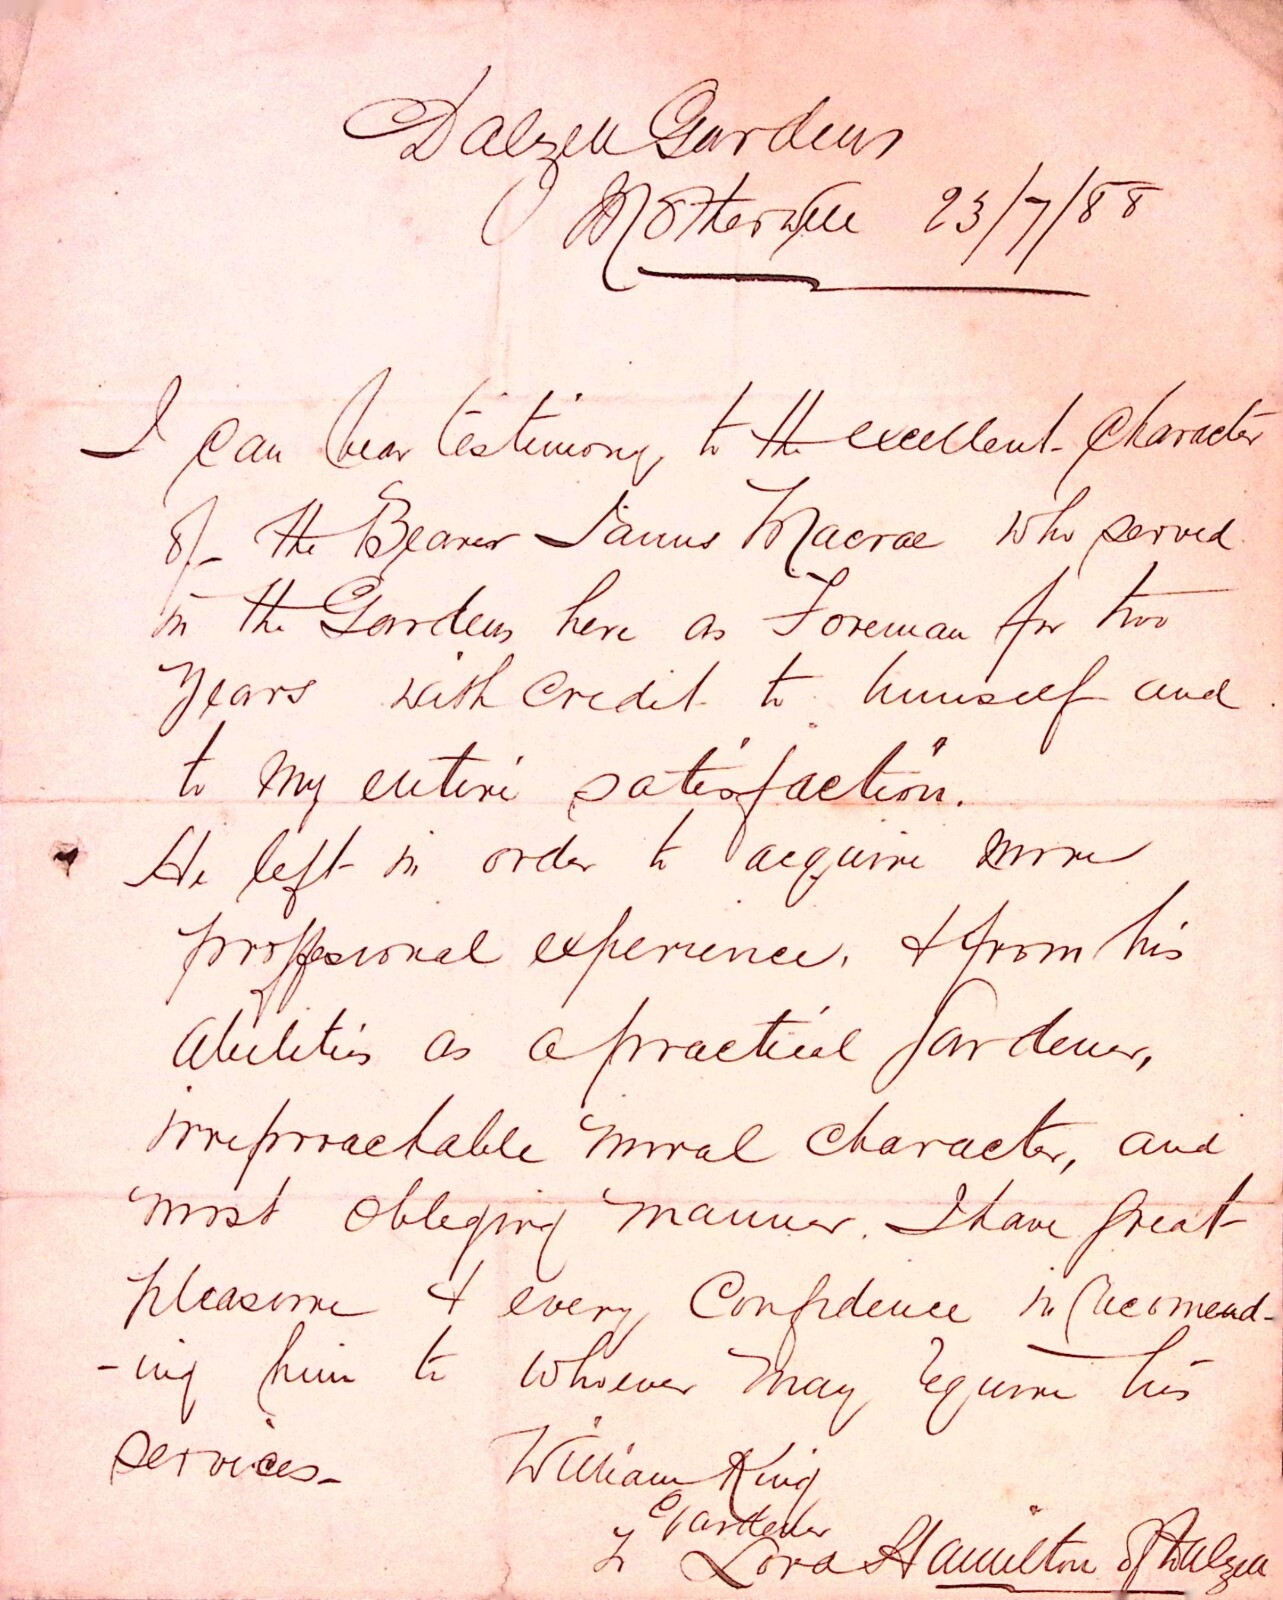 Dalzell Gardens
Motherwell 23/7/88
I can bear testimony to the excellent character
of the Bearer James Macrae who served
in the Gardens here as Foreman for two
Years with credit to himself and
to my entire satisfaction.
He left in order to acquire more
proffesional experience. & from his
abilities as a practical Gardener,
irreproachable moral character, and
most obleging manner. I have great
pleasure & every Confidence in recomend-
-ing him to whoever may require his
services-
William King
Gardener
To Lord Hamilton of Dalzell